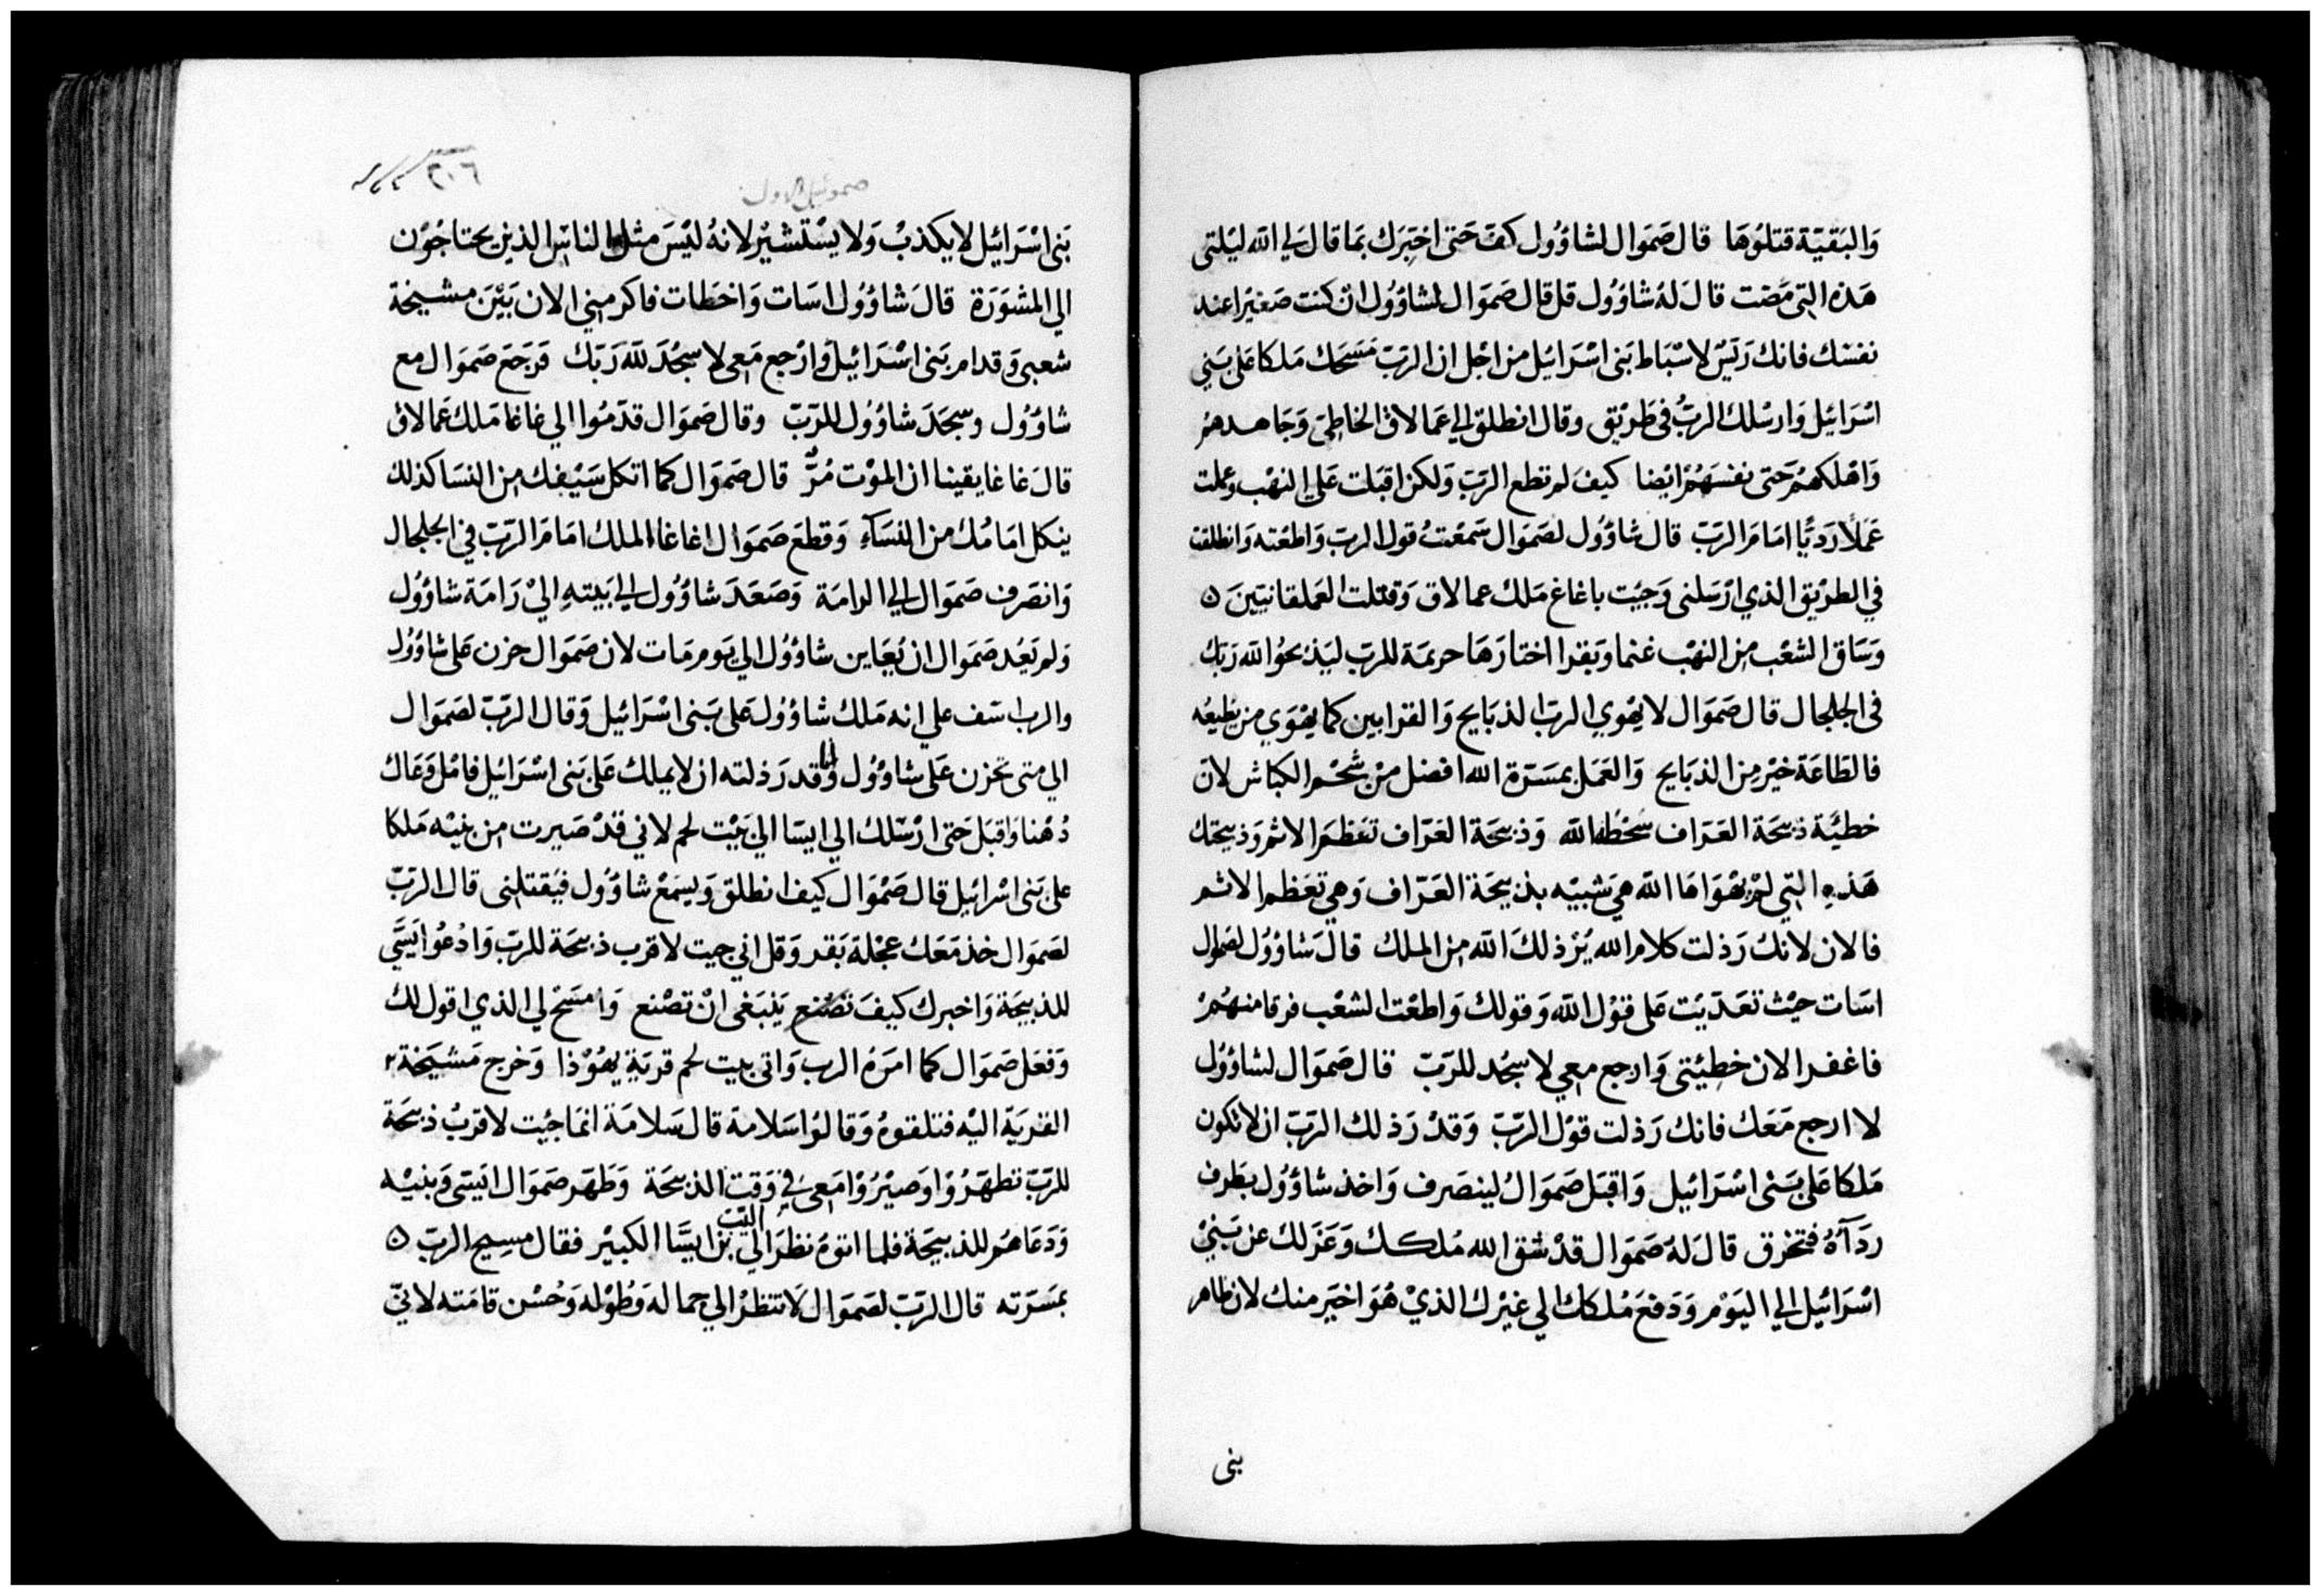 وَالبَقيّة قتلوُهَا قال صَمَوال لشاوُول كفّ حَتى اخبِرَك بمَا قال لي الله ليَلتى
هَذه التى مَضت قال لهُ شاوُول قل قال صَموَال لشاوُول ان كنت صَغيرًا عند
نفسَك فانك رَئيسٌ لاسْبَاط بَنى اسْرَائيل من اجْل ان الربّ مَسَحَك مَلكا عَلى بَني
اسْرَائيل وَارسْلك الربُّ في طَريْق وقال انطلق الي عَمالاق الخاطئ وَجَاهدهمْ
وَاهْلكهُمْ حَتى نفسَهُمْ ايْضا كيفَ لم تطع الربّ وَلكن اقبَلت عَلى النهْب وعملت
عَمَلًا رَديًّا امَامَ الربّ قال شاوُول لصَموَال سَمعْتُ قول الربّ وَاطعْته وَانطلقت
في الطريْق الذي ارْسَلنى وَجئت باغاغ مَلك عمالاق وَقتلت العَملقانيّينَ ٥
وَسَاق الشعْب من النهْب غنما وَبقرا اختارَهَا حريمَة للربّ ليَذبحوُا لله رَبّك
في الجلجال قال صَموَال لا يهْوي الربّ الذبَايح وَالقرابين كما يهْوَي من يطيعُه
فالطاعَة خيْر من الذبَايح وَالعَمَل بمسَرّة الله افضل منْ شحْم الكباش لانّ
خطيَّة ذبيحَة العَرّاف سُخْطُ الله وَذبيحَة العَرّاف تعَظمُ الاثم وَذبيحَتك
هَذهِ التي لمْ يَهْوَاهَا الله هيَ شبيْه بذبيحَة العَرّاف وَهي تعَظم الاثم
فالان لانكَ رَذلت كلام الله يُرْذلكَ الله من الملك قالَ شاوُوُل لصَموال
اسَات حيْث تعَدّيَت عَلى قوْل الله وَقولك وَاطعْت الشعْب فرقا منهُمْ
فاغفر الان خطيَئتى وَارجع معي لاسجُد للرَبّ قال صَموَال لشاوُول
لا ارجع مَعَك فانك رَذلت قوْل الربّ وَقدْ رَذلك الربّ ان لا تكون
مَلكا عَلى بَنْى اسْرَائيل وَاقبَل صَموَالُ لينصَرف وَاخذ شاوُول بطَرف
ردَآهُ فتخرّق قال لهُ صَموَال قدْ شق الله مُلكك وَعَزَلك عن بَنيْ
اسْرَائيل الي اليَوْم وَدَفعَ مُلكك الي غيْرك الذيْ هُوَ اخيَر منك لان طاهر
بنى
٣٠٦
صموئيل الاول
بَنى اسْرَائيل لا يكذبْ وَلا يسْتشيْر لانهُ ليْسَ مثل الناس الذين يحتاجُوْن
الي المشوَرَة قالَ شاوُول اسَات وَاخطَات فاكرميني الان بَيْنَ مشيخة
شعبى وَقدام بَنى اسْرَائيل وَارْجع مَعى لاسجُدَ للهَ رَبّك فرَجَعَ صَموَال مع
شاوُول وسجَدَ شاوُول للرّبّ وقال صَموَال قدّمُوا الي غاغا مَلك عَمالاق
قالَ غاغا يقينا ان الموْت مُرٌّ قال صَموَال كما اثكل سَيْفك من النسَا كذلك
يثكل امَامُك من النسَاءِ وَقطعَ صَموَال اغاغا الملك امَامَ الربّ في الجلجال
وَانصَرف صَموَال الي الرامَة وَصَعَدَ شاوُول الي بَيتهِ اليْ رَامَة شاوُول
وَلم يَعُد صَموَال ان يُعَاين شاوُول الي يَوم مَات لان صَموَال حزن عَلى شاوُول
والرب اسَف علي انه مَلك شاوُول عَلى بَنى اسْرَائيل وَقال الربّ لصَموَال
الي متى تحَزن عَلى شاوُول وَانا قد رَذلته ان لا يملك عَلى بَنى اسْرَائيل فامْل وَعَاك
دُهْنا وَاقبَل حَتى ارْسَلك الي ايسّا الي بَيْت لحم لاني قدْ صَيرت من بنيْه مَلكا
على بَنى اسْرائيل قال صَمْوَال كيف انطلق وَيسمَعْ شاوُول فيَقتلنى قال الربّ
لصَموَال خذ مَعَك عجْلة بَقر وَقل اني جيت لاقرب ذبيحَة للربّ وَادْعُوا ايَسَّي
للذبيحَة وَاخبرك كيفَ تصْنع يَنبَغى انْ تصْنع وَامسَح لي الذي اقول لك
وَفعَل صَموَال كما امَرَهُ الرب وَاتى بيت لحم قريَة يهُوْذا وَخرج مَشيَخة
القريَة اليْه فتلقوهُ وَقالوُا سَلامة قال سَلامَة انمَا جئت لاقربُ ذبيحَة
للربّ تطهّرُوْا وصيْرُوْا مَعى في وَقت الذبيحَة وَطَهّر صَموَال ايَسّى وَبنيْه
وَدَعَاهُم للذبيحَة فلما اتوهُ نظرَ الي اليّب بْن ايسَّا الكبيْر فقال مسِيح الربّ ٥
بمسَرّته قال الربّ لصَموَال لا تنظرْ الي جماله وَطُوْله وَحُسْن قامَته لانيّ